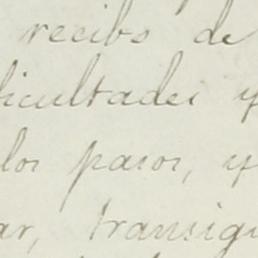 recibo de
dicultades y
los pasos, y
ar, transig